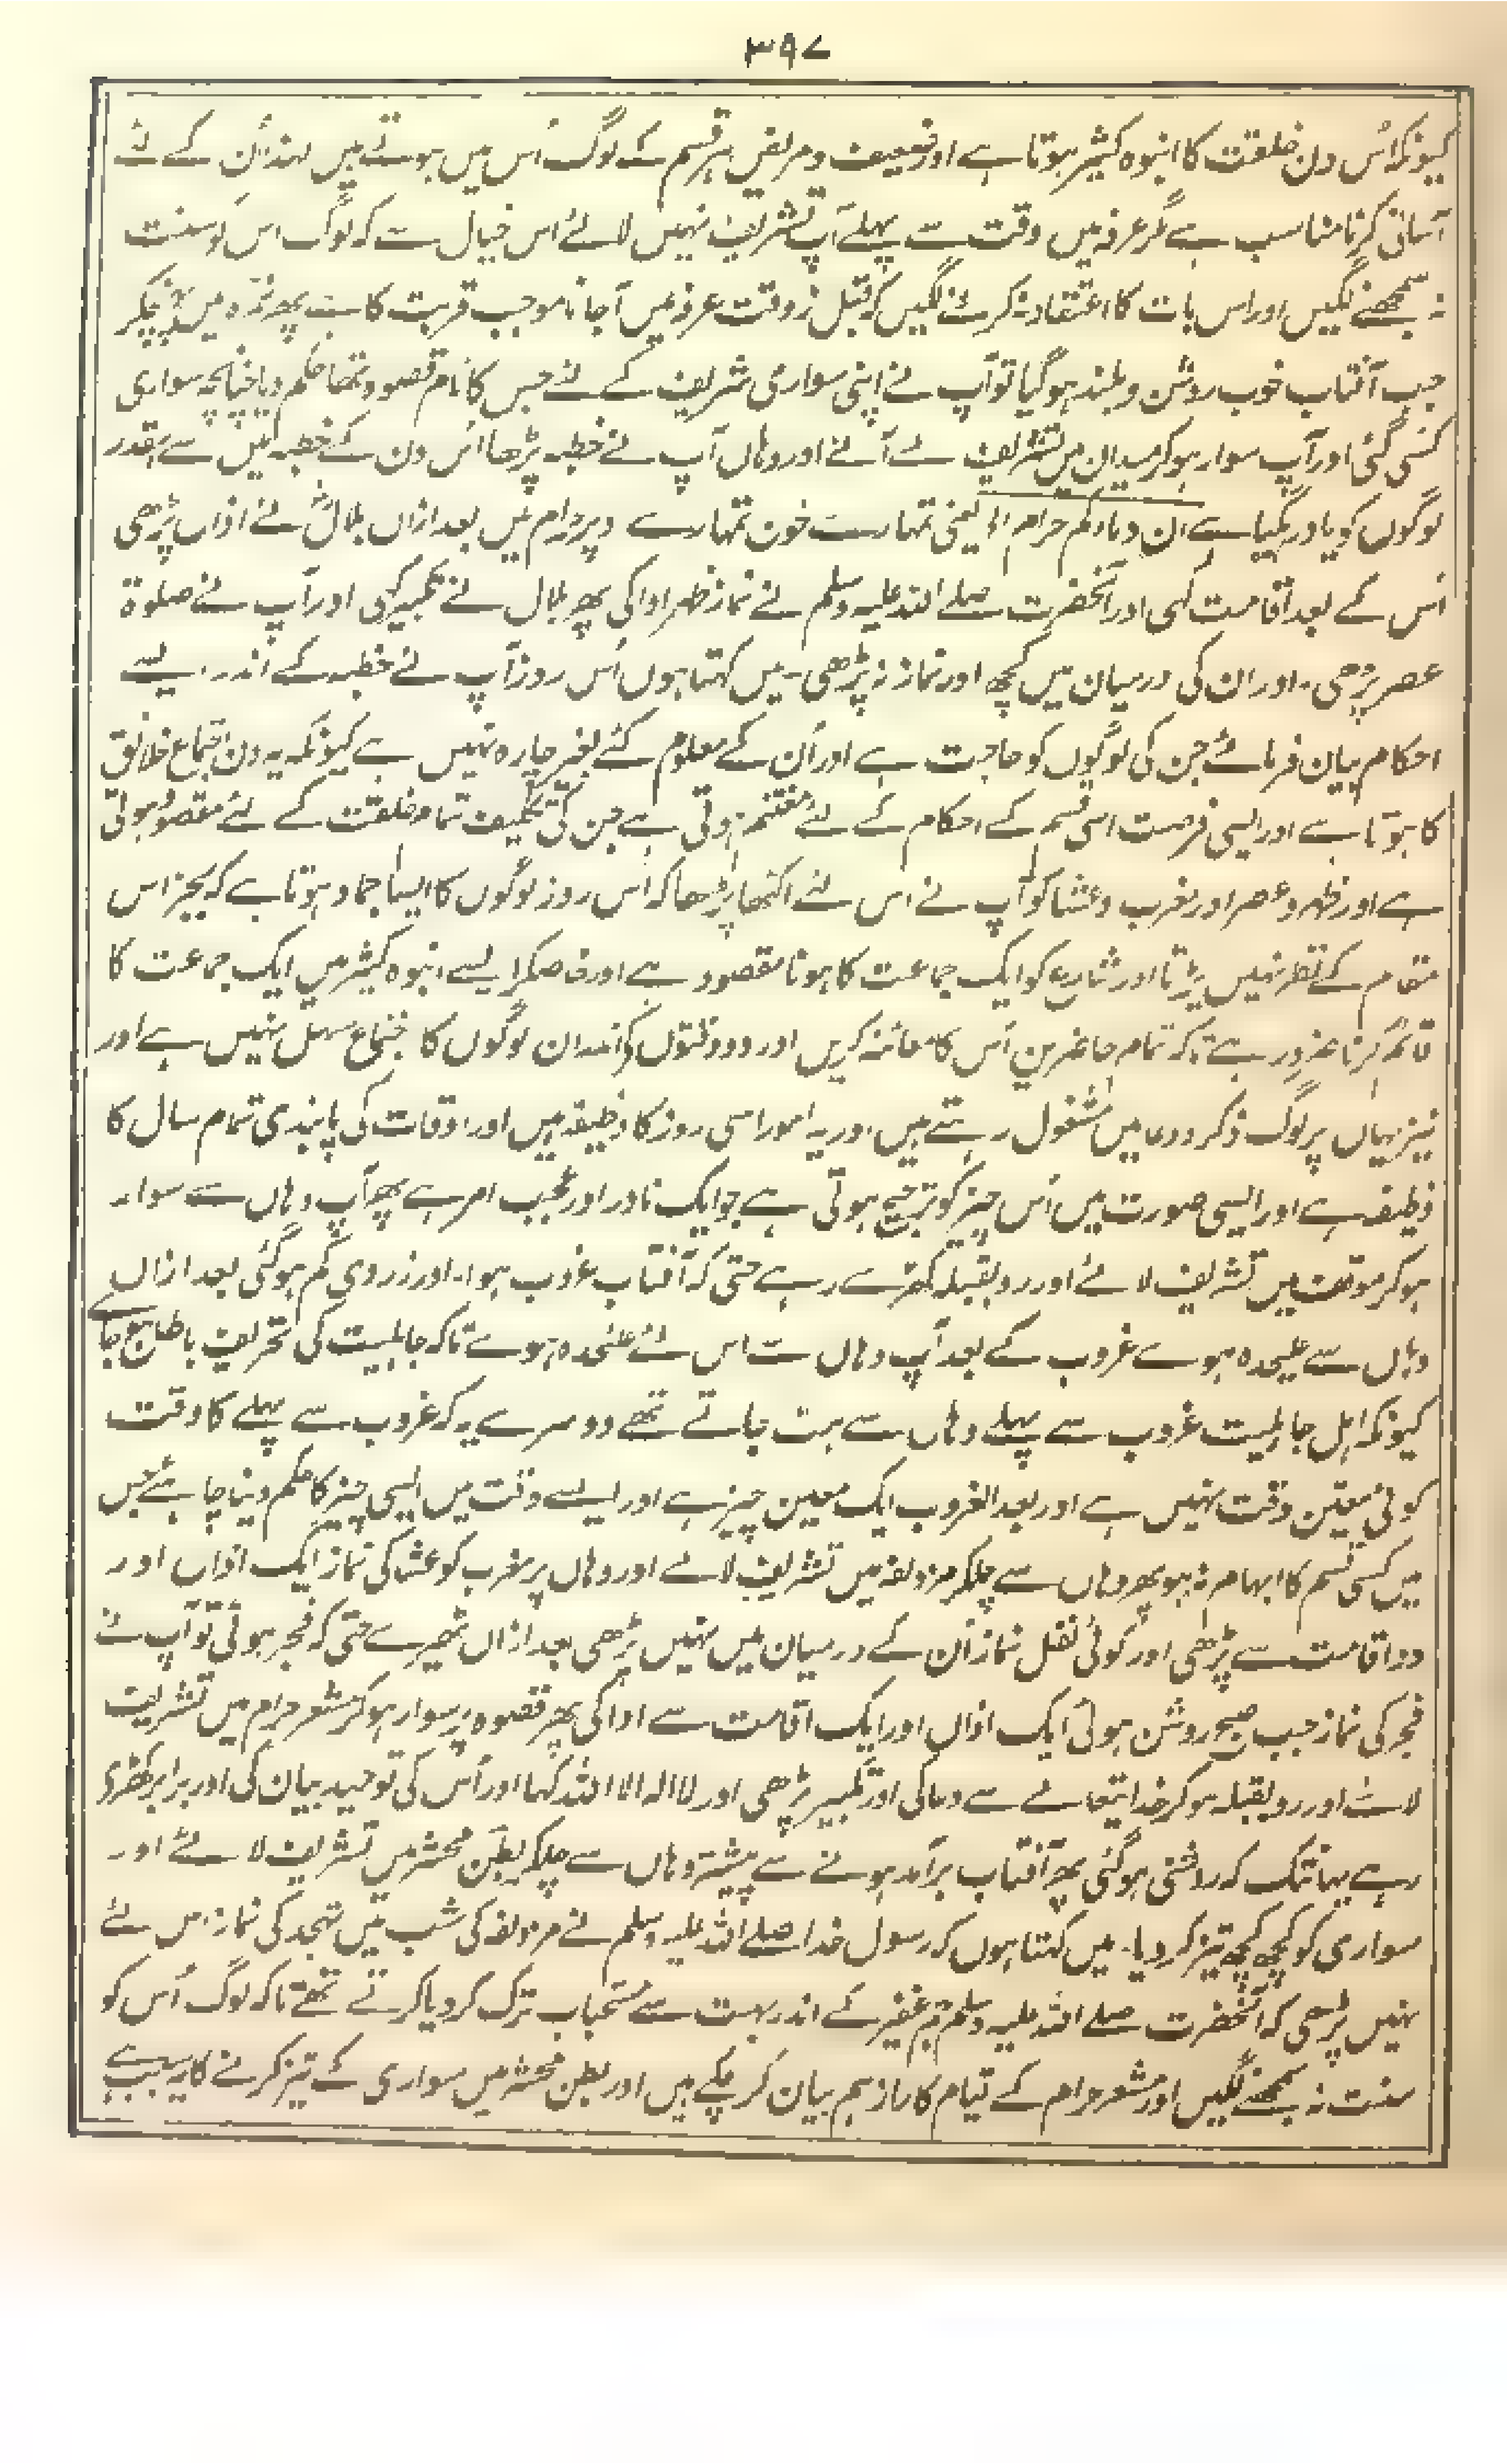 ۳۹۷
کیونکہ اُس دن خلقت کا انبوہ کثیر ہوتا ہے اور ضعیف و مریض ہر قسم کے لوگ اُس میں ہوتے ہیں لہذا اُن کے لئے
آسانی کرنا مناسب ہے مگر عرفہ میں وقت سے پہلے آپ تشریف نہیں لائے اس خیال سے کہ لوگ اس کو سنت
نہ سمجھنے لگیں اور اس بات کا اعتقاد نہ کرنے لگیں کہ قبل از وقت عرفہ میں آجانا موجب قربت کا ہے پھر نمرہ میں
جب آفتاب خوب روشن و بلند ہو گیا تو آپ نے اپنی سواری شریف کے لئے جس کا نام قصوہ تھا حکم دیا چنانچہ سواری
کسی گئی اور آپ سوار ہو کر میدان میں تشریف لے آئے اور وہاں آپ نے خطبہ پڑھا اُس دن کے خطبہ میں سے اسقدر
لوگوں کو یاد رہگیا ہے ان دماءکم حرام الخ یعنی تمہارے خون تمہارے اوپر حرام ہیں بعد ازاں بلالؓ نے اذاں پڑھی
اُس کے بعد اقامت کہی اور آنحضرت صلے اللہ علیہ وسلم نے نماز ظہر ادا کی پھر بلال نے تکبیر کہی اور آپ نے صلوۃ
عصر پڑھی۔ اور ان کی درمیان میں کچھ اور نماز نہ پڑھی۔ میں کہتا ہوں اُس روز آپ نے خطبہ کے اندر ایسے
احکام بیان فرمائے جن کی لوگوں کو حاجت ہے اور اُن کے معلوم کئے بغیر چارہ نہیں ہے کیونکہ یہ دن اجتماع خلائق
کا ہوتا ہے اور ایسی فرصت اسی قسم کے احکام کے لئے مغتنم ہوتی ہے جن کی تکلیف تمام خلقت کے لئے مقصود ہوتی
ہے اور ظہر و عصر اور مغرب و عشا کو آپ نے اس لئے اکٹھا پڑھا کہ اُس روز لوگوں کا ایسا جماو ہوتا ہے کہ بجز اس
مقام کے نظر نہیں پڑتا اور شارع کو ایک جماعت کا ہونا مقصود ہے اور خاصکر ایسے انبوہ کثیر میں ایک جماعت کا
قائم کرنا ضرور ہے تاکہ تمام حاضرین اُس کا معائنہ کریں اور دو وقتوں کے اندر ان لوگوں کا اجتماع سہل نہیں ہے اور
نیز یہاں پر لوگ ذکر و دعا میں مشغول رہتے ہیں اور یہ امور اسی روز کا وظیفہ ہیں اور اوقات کی پابندی تمام سال کا
وظیفہ ہے اور ایسی صورت میں اُس چیز کو ترجیح ہوتی ہے جو ایک نادر اور عجیب امر ہے پھر آپ وہاں سے سوار
ہو کر موقف میں تشریف لائے اور رو بقبلہ کھڑے رہے حتی کہ آفتاب غروب ہوا۔ اور زردی کم ہو گئی بعد ازاں
وہاں سے علیحدہ ہوے غروب کے بعد آپ وہاں سے اس لئے علیحدہ ہوے تاکہ جاہلیت کی تحریف باطل ہو جائے
کیونکہ اہل جاہلیت غروب سے پہلے وہاں سے ہٹ جاتے تھے دوسرے یہ کہ غروب سے پہلے کا وقت
کوئی معین وقت نہیں ہے اور بعد الغروب ایک معین چیز ہے اور ایسے وقت میں ایسی چیز کا حکم دینا چاہئے جس
میں کسی قسم کا ابہام نہ ہو پھر وہاں سے چلکر مزدلفہ میں تشریف لائے اور وہاں پر مغرب کو عشا کی نماز ایک اذاں اور
دو اقامت سے پڑھی اور کوئی نفل نماز اُن کے درمیان میں نہیں پڑھی بعد ازاں ٹھیرے حتی کہ فجر ہوئی تو آپ نے
فجر کی نماز جب صبح روشن ہوئی ایک اذاں اور ایک اقامت سے ادا کی پھر قصوہ پر سوار ہو کر مشعر حرام میں تشریف
لائے اور رو بقبلہ ہو کر خدایتعالے سے دعا کی اور تکبیر پڑھی اور لا الہ الا اللہ کہا اور اُس کی توحید بیان کی اور برابر کھڑے
رہے یہانتک کہ روشنی ہو گئی پھر آفتاب برآمد ہونے سے پیشتر وہاں سے چلکر بطن محشر میں تشریف لائے اور
سواری کو کچھ کچھ تیز کر دیا۔ میں کہتا ہوں کہ رسول خدا صلے اللہ علیہ وسلم نے مزدلفہ کی شب میں تہجد کی نماز اس لئے
نہیں پڑھی کہ آنحضرت صلے اللہ علیہ وسلم جم غفیر کے اندر بہت سے مستحباب ترک کر دیا کرتے تھے تاکہ لوگ اُس کو
سنت نہ سمجھنے لگیں اور مشعر حرام کے قیام کا راز ہم بیان کر چکے ہیں اور بطن محشر میں سواری کے تیز کرنے کا یہ سبب ہے